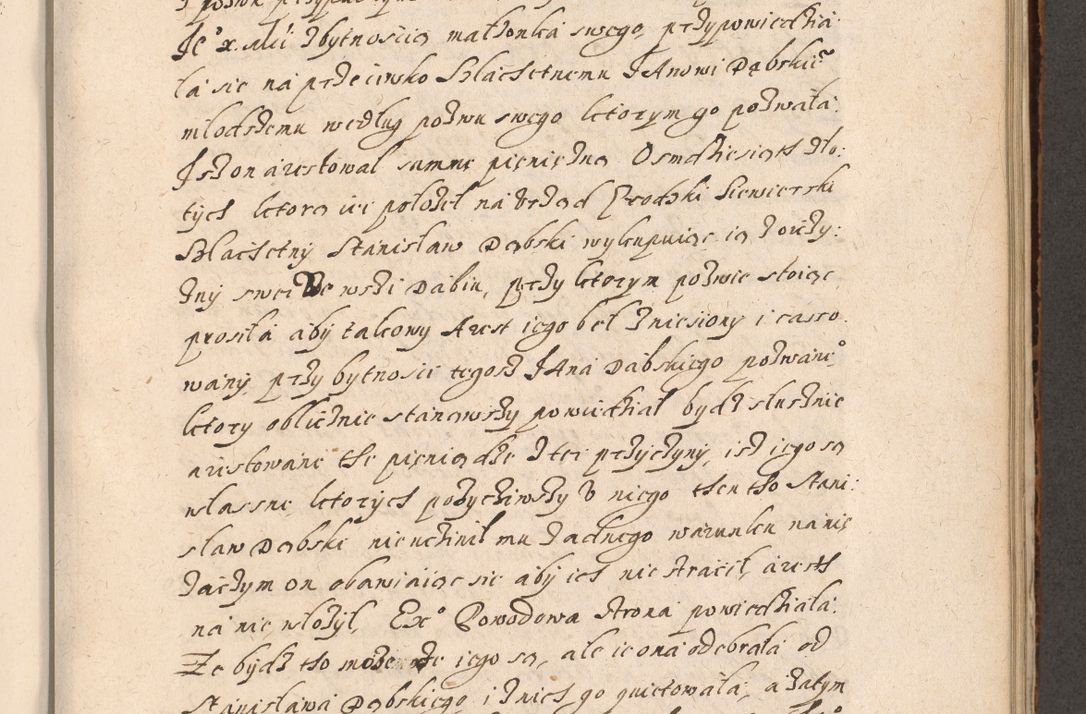 Je° x. Mći zbytnoscią małżonka swego, przypowiedzia
ła sie na przeciwko Szlachetnemu JAnowi Dąbskie~
młodszemu według pozwu swego ktorym go pozwała.
Isz on arestował summę pięniężną Osmdziesiąth zło:
tych ktorą iei położeł na Vrząd Grodzki Siewierski
Szlachetny Stanisław Dąbski wykupuiąc ią z oiczy:
zny swei We wszi Dabiu, przy ktorym pozwie stoiąc,
prosiła aby takowy Arest iego beł zniesiony i casso
wany, przy bytnosci tegosz JAna Dąbskiego pozwane°
ktory oblicznie stanąwszy powiedział bydz słusznie
arestowane the pięniądze z tei przyczyny, isz iego są
własne ktorych pożyczywszy v niego then tho Stani:
sław Dąbski nie uczinił mu żadnego warunku na nię
Zaczym on obawiaiąc sie aby ich nie stracił, aresth
na nie włożył, Ex° Powodowa strona powiedziała.
Ze bydz tho może że iego są, ale ie ona odebrała od
Stanisława Dąbskiego i z nich go quietowała, a zatym